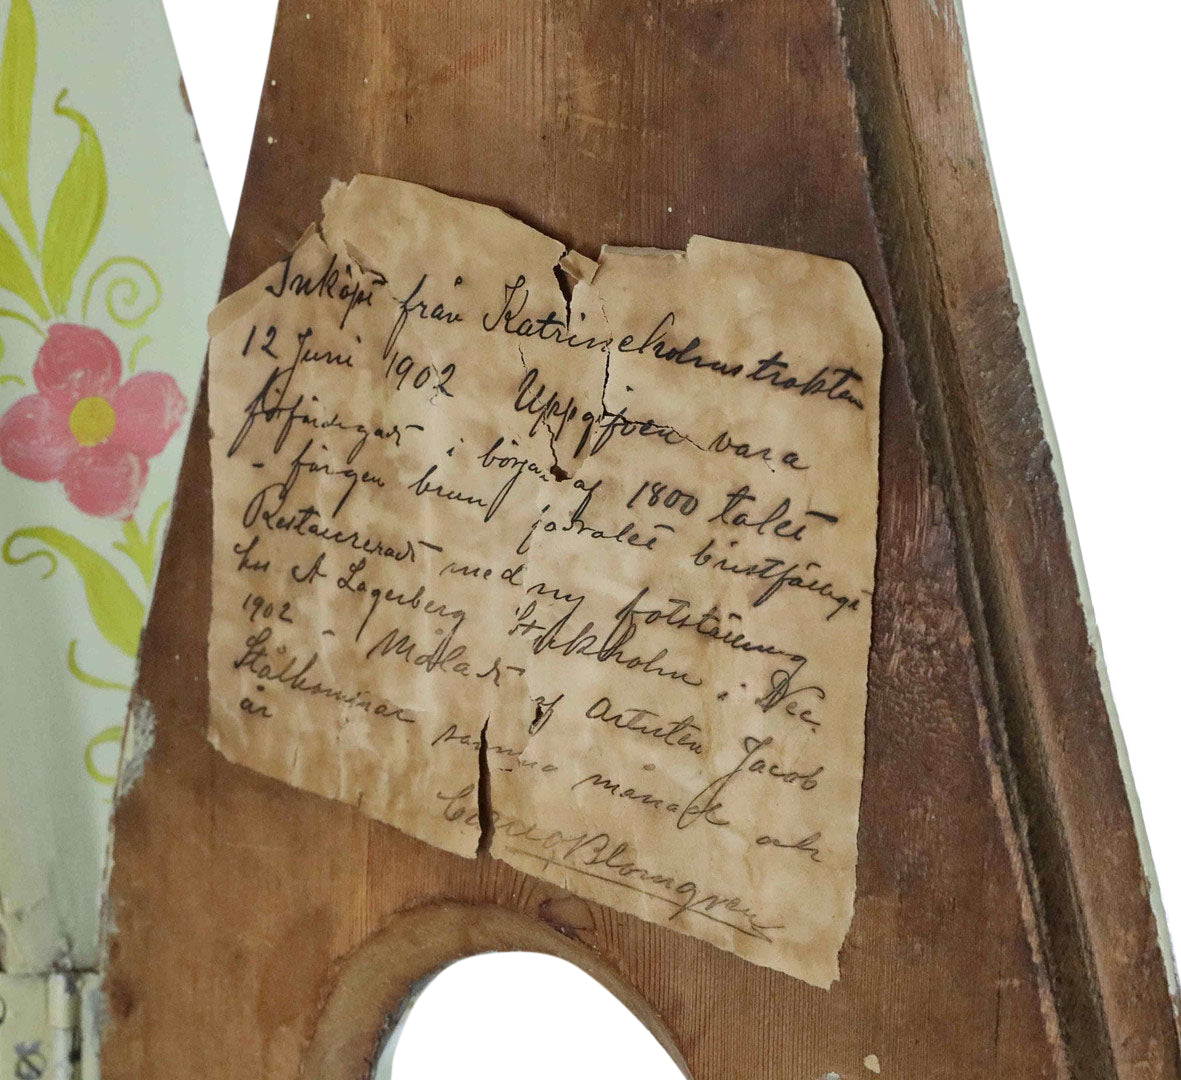 Inköpt från Katrineholmstrakten
12 Juni 1902 Uppgifven vara
förfärdigadt i början af 1800 talet
- färgen brun jemte bristfälligt
Restaureradt med ny fotställning
hos A Lagerberg Stockholm i Dec.
1902 - Måladt af Artisten Jacob
Stålhammar samma månad och
år
Blomgren